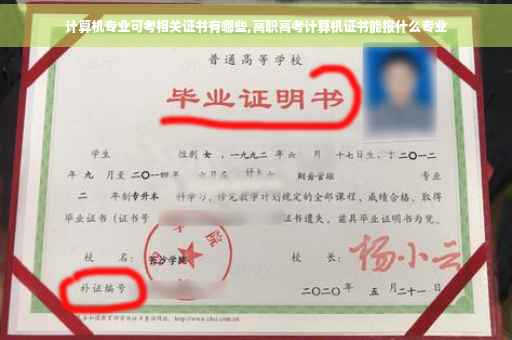 计算机专业可考相关证书有哪些,高职高考计算机证书能报什么专业
普通高等学校
毕业证明书
学生 性别 女，一九九二年六 月 十七日生，于二〇一二
年 九 月至二〇一四年 六月在 财务管理 专业
二 年制专升本 科学习，修完教学计划规定的全部课程，成绩合格，取得
毕业证书（证书号 证书遗失，兹具毕业证明书为凭。
校 名： 长沙学院 校 长： 杨小云
补证编号
二〇二〇年 五 月二十一日
http://www.chsi.com.cn